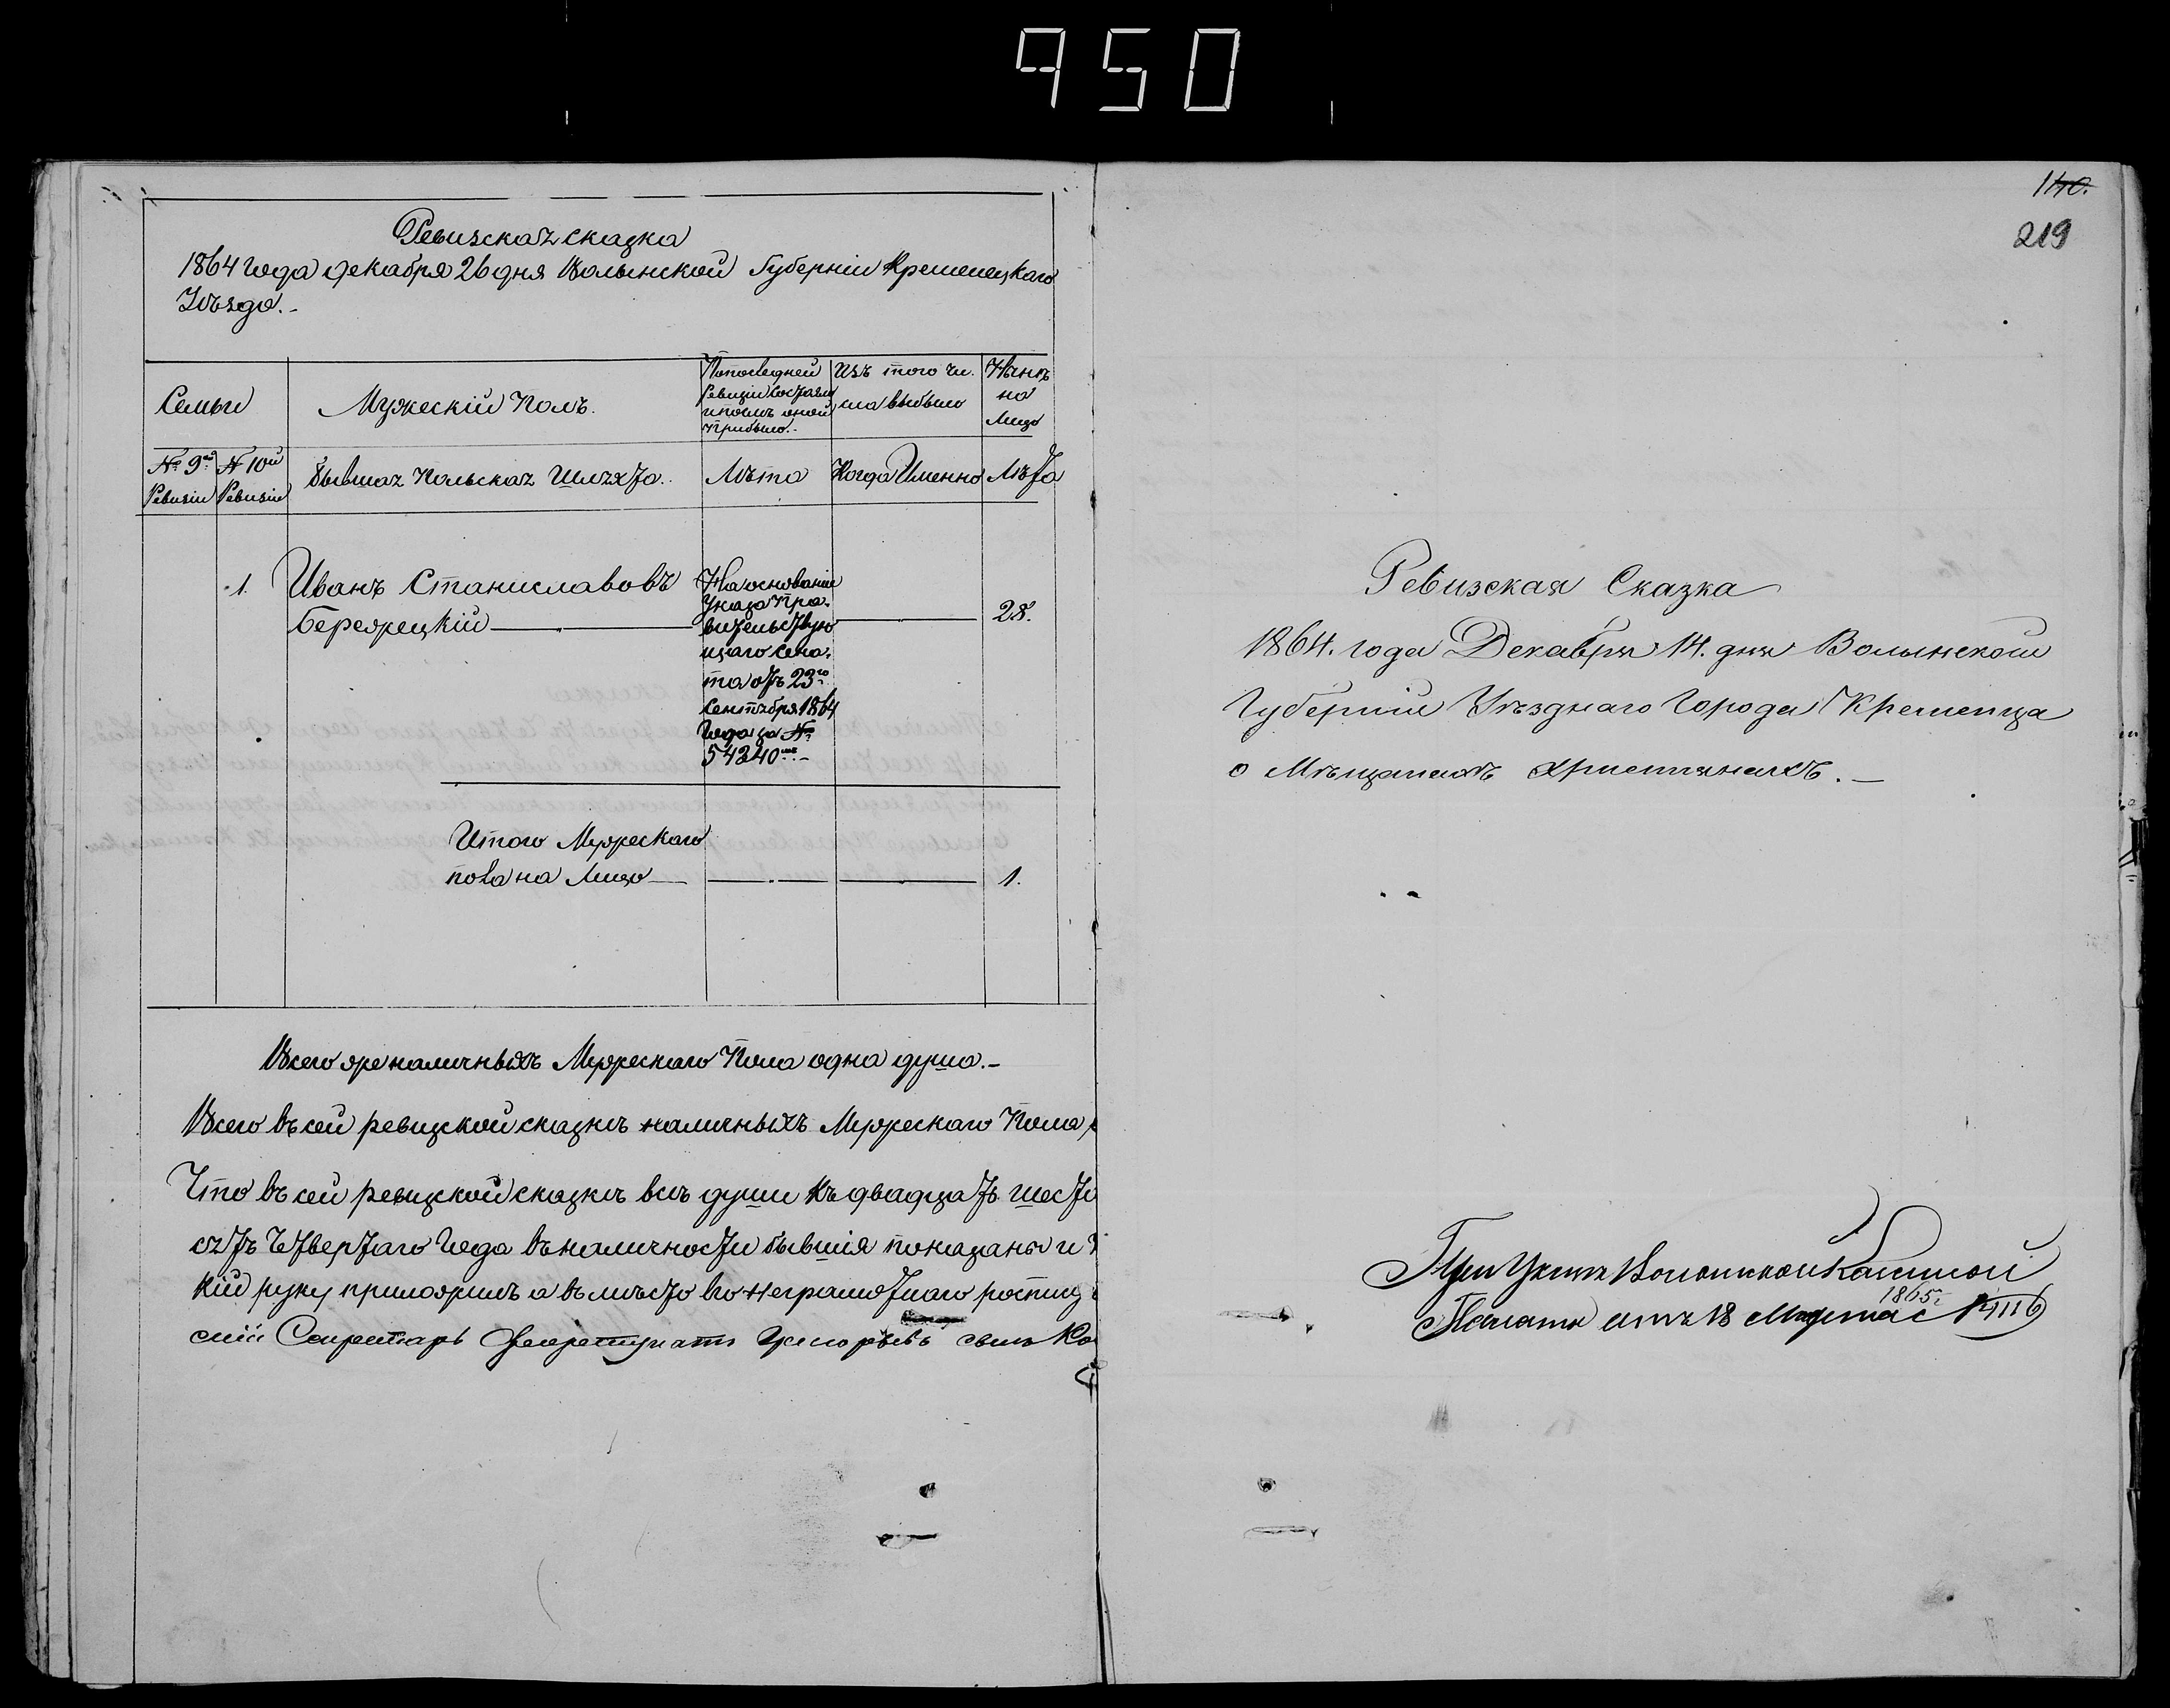 950
Ревизская сказка
1864 года декабря 26 дня Волынской Губерніи Кременецкаго
Уѣзда.-
Семьи
Мужескій Полъ.
По последней Ревизіи состояло и послѣ оной прибыло.-
Изъ того чи-сла выбыло
Нынѣ на Лицо
№ 9ой Ревизіи
№ 10ой Ревизіи
бывшая Польская Шляхта.
Лѣта
Когда Именно
Лѣта
1.
Иванъ Станиславовъ
Бережецкій
На основаніи
указа Пра-
вительствую
щаго Сена-
та отъ 23го
Сентября 1864
Года за №
54240мъ.-
28.
Итого Мужескаго
пола на Лицо
1.
Всего же наличныхъ Мужескаго Пола одна душа.-
Всего въ сей ревизской сказкѣ наличныхъ Мужескаго Пола
Что въ сей ревизской сказкѣ всѣ души къ двадцать шесто
сятъ Четвертаго Года въ наличности бывшія показаны и
кій руку приложилъ а вмѣсто его неграмотнаго росписа
скій Секретарь
140.
219
Ревизская Сказка
1864. года Декабря 14. дня Волынской
Губерніи Уѣзднаго Города Кременца
о Мѣщанахъ Христіянахъ.-
При Указѣ Волынской Казенной
1865г.
Палаты отъ 18 Марта с № 4116